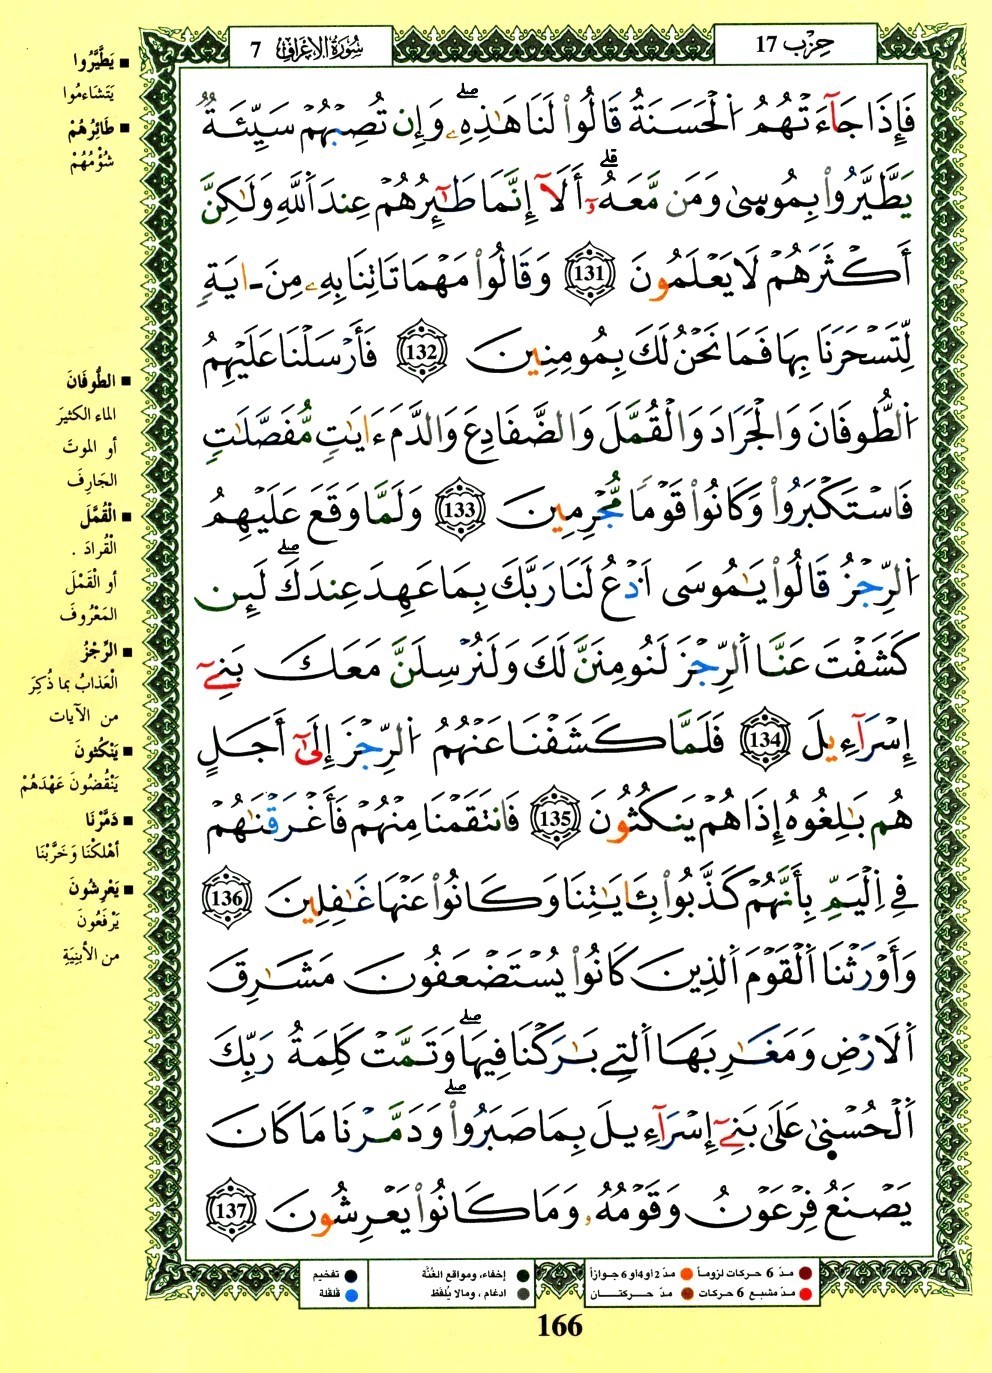 سُورَةُ الاعْرَافِ 7
حِزْب 17
فَإِذَا جَآءَتْهُمُ اُ۬لْحَسَنَةُ قَالُواْ لَنَا هَٰذِهِۦۖ وَإِن تُصِبْهُمْ سَيِّئَةٞ
يَطَّيَّرُواْ بِمُوس۪يٰ وَمَن مَّعَهُۥٓۗ أَلَآ إِنَّمَا طَٰٓئِرُهُمْ عِندَ اَ۬للَّهِ وَلَٰكِنَّ
أَكْثَرَهُمْ لَا يَعْلَمُونَ 131 وَقَالُواْ مَهْمَا تَاتِنَا بِهِۦ مِنَ ـ ايَةٖ
لِّتَسْحَرَنَا بِهَا فَمَا نَحْنُ لَكَ بِمُومِنِينَ 132 فَأَرْسَلْنَا عَلَيْهِمُ
اُ۬لطُّوفَانَ وَالْجَرَادَ وَالْقُمَّلَ وَالضَّفَادِعَ وَالدَّمَ ءَايَٰتٖ مُّفَصَّلَٰتٖ
فَاسْتَكْبَرُواْ وَكَانُواْ قَوْماٗ مُّجْرِمِينَ 133 وَلَمَّا وَقَعَ عَلَيْهِمُ
اُ۬لرِّجْزُ قَالُواْ يَٰمُوسَى اَ۟دْعُ لَنَا رَبَّكَ بِمَا عَهِدَ عِندَكَۖ لَئِن
كَشَفْتَ عَنَّا اَ۬لرِّجْزَ لَنُومِنَنَّ لَكَ وَلَنُرْسِلَنَّ مَعَكَ بَنِےٓ
إِسْرَآءِيلَ 134 فَلَمَّا كَشَفْنَا عَنْهُمُ اُ۬لرِّجْزَ إِلَىٰٓ أَجَلٍ
هُم بَٰلِغُوهُ إِذَا هُمْ يَنكُثُونَ 135 فَانتَقَمْنَا مِنْهُمْ فَأَغْرَقْنَٰهُمْ
فِے اِ۬لْيَمِّ بِأَنَّهُمْ كَذَّبُواْ بِـَٔايَٰتِنَا وَكَانُواْ عَنْهَا غَٰفِلِينَ 136
وَأَوْرَثْنَا اَ۬لْقَوْمَ اَ۬لذِينَ كَانُواْ يُسْتَضْعَفُونَ مَشَٰرِقَ
اَ۬لَارْضِ وَمَغَٰرِبَهَا اَ۬لتِے بَٰرَكْنَا فِيهَاۖ وَتَمَّتْ كَلِمَةُ رَبِّكَ
اَ۬لْحُسْن۪يٰ عَلَىٰ بَنِےٓ إِسْرَآءِيلَ بِمَا صَبَرُواْۖ وَدَمَّرْنَا مَا كَانَ
يَصْنَعُ فِرْعَوْنُ وَقَوْمُهُۥ وَمَا كَانُواْ يَعْرِشُونَ 137
■ يَطَّيَّرُوا
يَتَشَاءَمُوا
■ طَائِرُهُمْ
شُؤْمُهُمْ
■ الطُّوفَانَ
الماء الكثيرَ
أو الموتَ
الجَارِفَ
■ الْقُمَّلَ
الْقُرادَ .
أو الْقَمْلَ
المَعْرُوفَ
■ الرِّجْزُ
الْعَذابُ بما ذُكِرَ
من الآيات
■ يَنْكُثونَ
يَنْقُضُونَ عَهْدَهُمْ
■ دَمَّرْنَا
أهْلكْنَا وَخَرَّبْنَا
■ يَعْرِشُونَ
يَرْفَعُونَ
من الأبنِيَةِ
مدّ 6 حركات لزوماً مدّ 2 أو 4 أو 6 جوازاً
مدّ مشبع 6 حركات مدّ حركتــان
إخفاء، ومواقع الغُنَّة
ادغام ، ومالا يُلفَظ
تفخيم
قلقلة
166